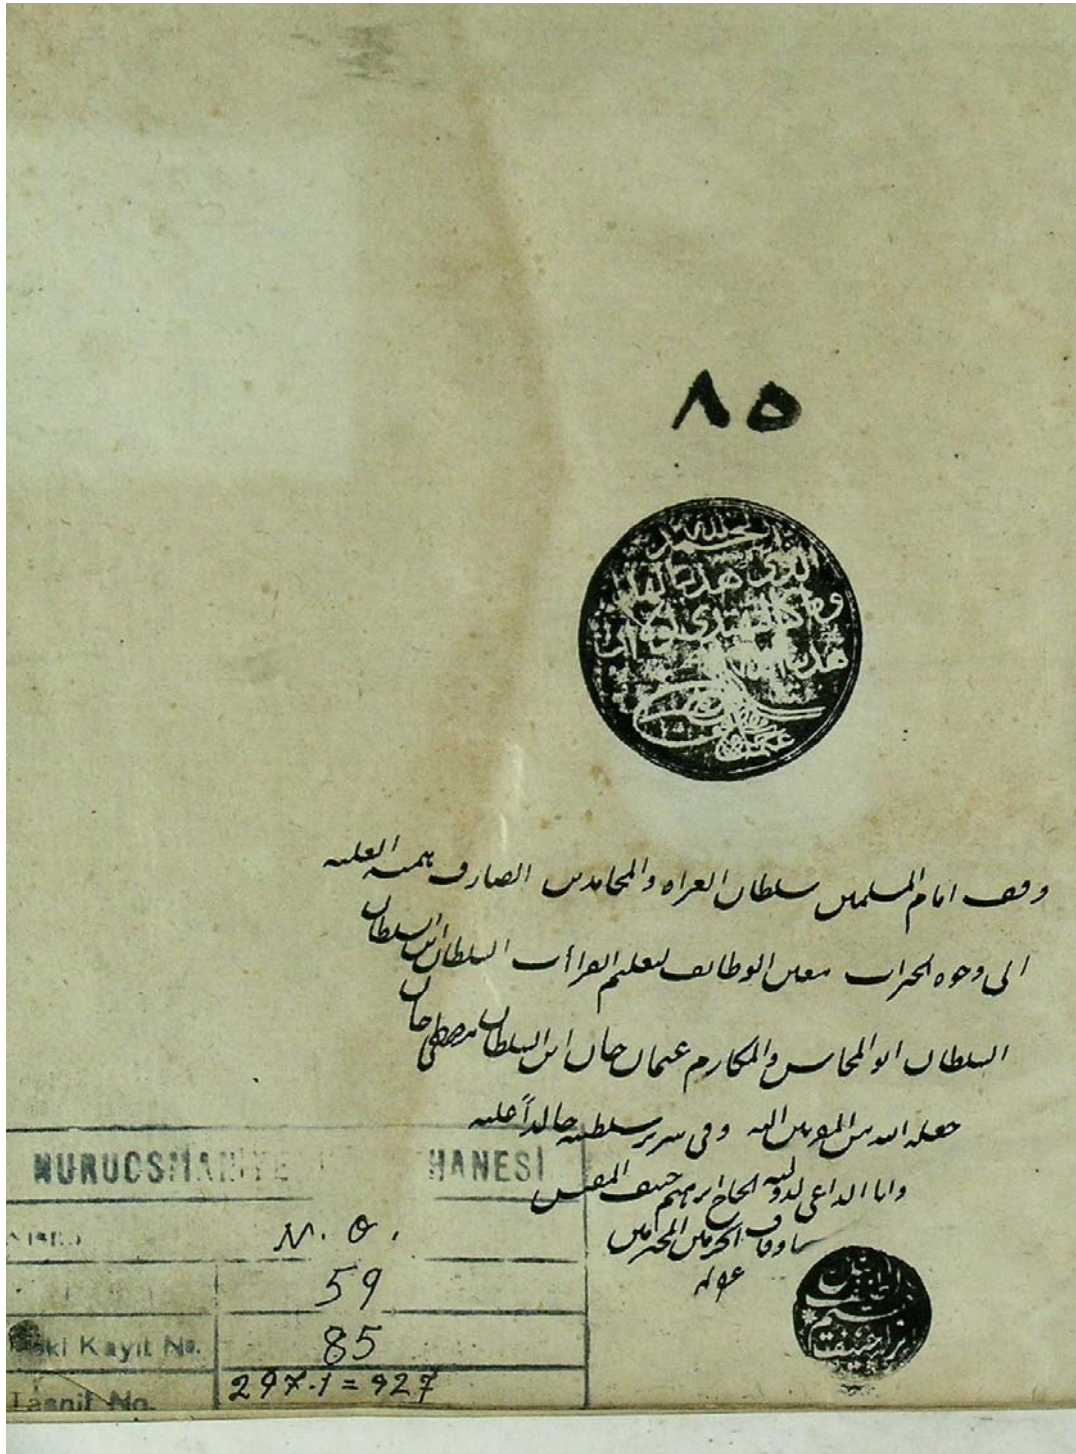 ٨٥
الحمد لله
الذي هدانا لهذا
وما كنا لنهتدي لولا ان
هدانا الله
وقف امام المسلمين سلطان الغزاة والمجاهدين الصارف همته العلية
الى وجوه الخيرات معين الوظائف لتعليم القراآت السلطان ابن السلطان
السلطان ابو المحاسن والمكارم عثمان خان ابن السلطان مصطفى خان
جعله الله من المقربين اليه وفي سرير سلطنته خالداً عليه
وانا الداعي لدولته الحاج ابرهيم حنيف المفتش
باوقاف الحرمين المحترمين
غفر له
NURUOSMANİYE HANESİ
N. O.
59
Eski Kayıt No. 85
Tasnif No. 297.1=927